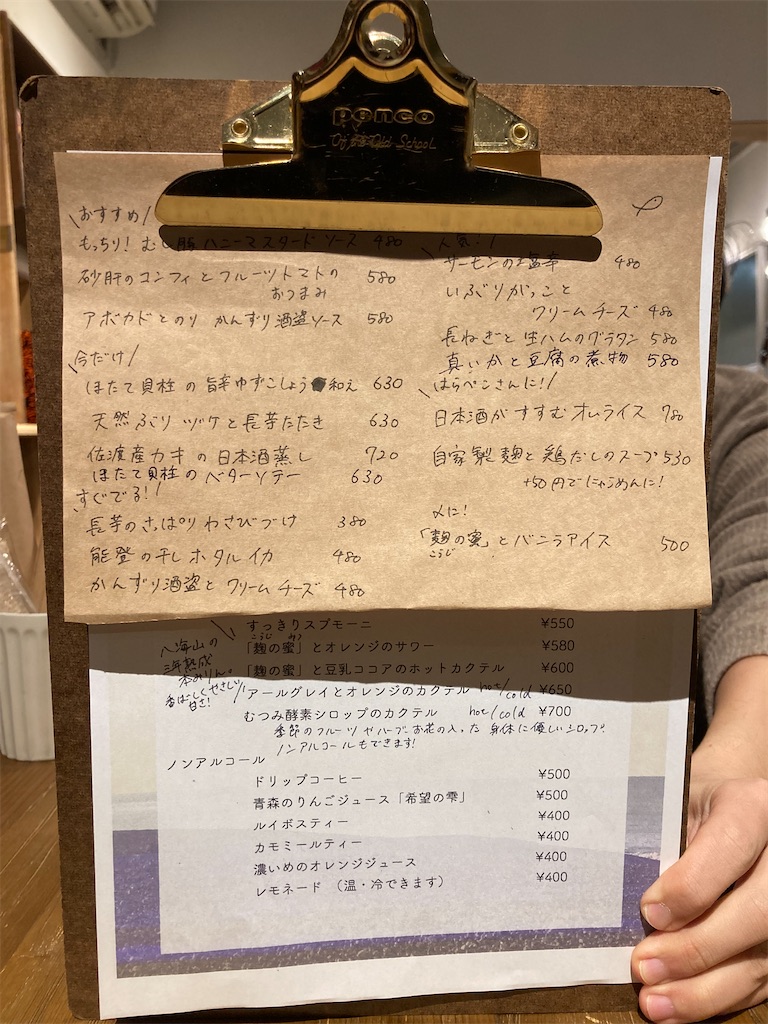 ponco
Of the Old School
おすすめ!
もっちり! むし豚 ハニーマスタードソース 480
砂肝のコンフィとフルーツトマトの
おつまみ 580
アボカドとのり かんずり酒盗ソース 580
今だけ!
ほたて貝柱の旨辛ゆずこしょう和え 630
天然ぶり ヅケと長芋たたき 630
佐渡産カキの日本酒蒸し 720
ほたて貝柱のベターソテー 630
すぐでる!
長芋のさっぱりわさびづけ 380
能登の干しホタルイカ 480
かんずり酒盗とクリームチーズ 480
人気!!
サーモンの 480
いぶりがっこと
クリームチーズ 480
長ねぎと生ハムのグラタン 580
真いかと豆腐の煮物 580
はらぺこさんに!
日本酒がすすむオムライス 780
自家製麹と鶏だしのスープ 530
+50円でにゅうめんに!
〆に!
「麹の蜜」とバニラアイス 500
こうじ
すっきりスプモーニ ¥550
こうじ みつ
「麹の蜜」とオレンジのサワー ¥580
「麹の蜜」と豆乳ココアのホットカクテル ¥600
アールグレイとオレンジのカクテル hot/cold ¥650
むつみ酵素シロップのカクテル hot/cold ¥700
季節のフルーツやハーブ、お花の入った 身体に優しいシロップ
ノンアルコールもできます!
八海山の
三年熟成
本みりん。
香ばしくやさしい
甘さ!
ノンアルコール
ドリップコーヒー ¥500
青森のりんごジュース「希望の雫」 ¥500
ルイボスティー ¥400
カモミールティー ¥400
濃いめのオレンジジュース ¥400
レモネード (温・冷できます) ¥400